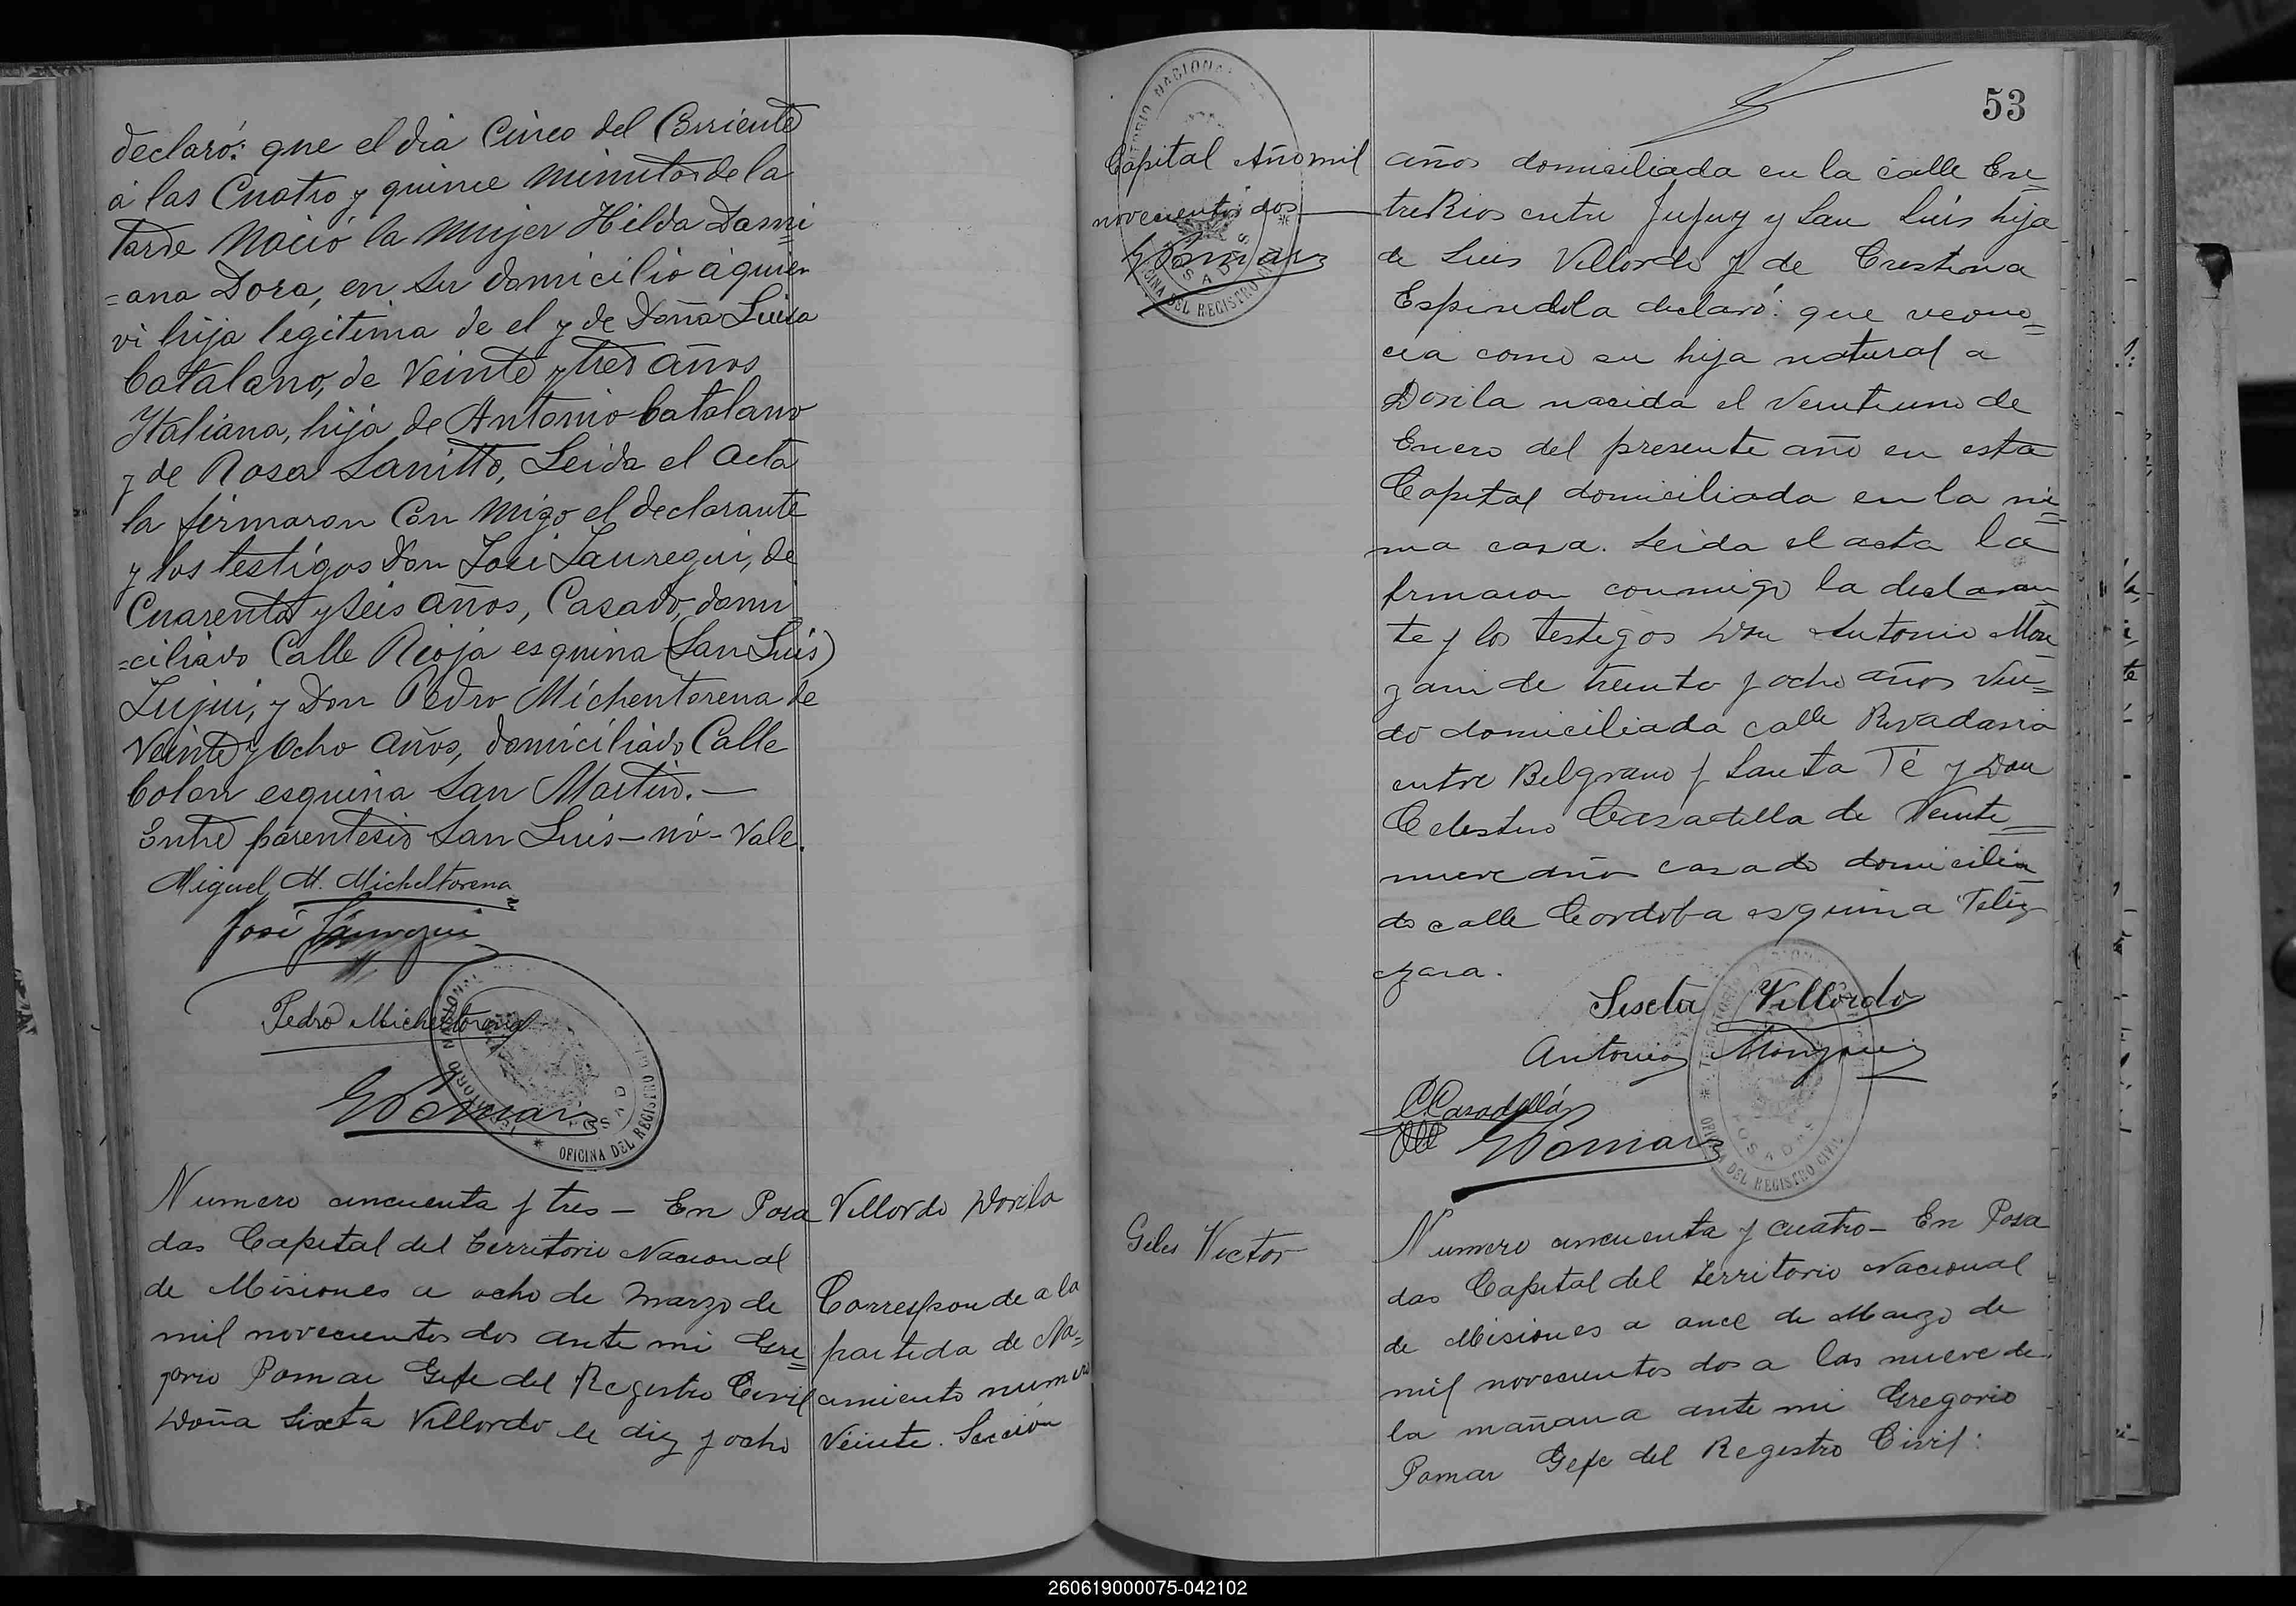 declaró: que el dia Cinco del Corriente
á las Cuatro y quince minutos de la
tarde Nació la mujer Hilda Dami
=ana Dora, en su domicilio á quien
vi hija legitima de el y de Doña Luisa
Catalano, de Veinte y tres años
Italiana, hija de Antonio Catalano
y de Rosa Sanitto, Leida el Acta
la firmaron Con migo el declarante
y los testigos Don José Jauregui, de
Cuarenta y seis años, Casado, domi
=ciliado Calle Rioja esquina (San Luis)
Jujui, y Don Pedro Michentorena de
Veinte y Ocho años, domiciliado Calle
Colon esquina San Martin.—
Entre parentesis San Luis—nó—Vale.
Miguel M. Micheltorena
José Jauregui
Pedro Micheltorena
GPomar
TERRITORIO NACIONAL
POSADAS
OFICINA DEL REGISTRO CIVIL
Numero cincuenta y tres — En Posa
das Capital del territorio Nacional
de Misiones a ocho de Marzo de
mil novecientos dos ante mi Gre=
gorio Pomar Gefe del Registro Civil
Doña Sixta Villordo de diez y ocho
Villordo Dorila
Corresponde a la
partida de Na=
cimiento numero
Veinte. Sección
Capital Año mil
novecientos dos—
GPomar
TERRITORIO NACIONAL
POSADAS
OFICINA DEL REGISTRO CIVIL
53
años domiciliada en la calle En=
tre Rios entre Jujuy y San Luis hija
de Luis Villordo y de Cristina
Espindola declaró: que recono=
cia como su hija natural a
Dorila nacida el Veintiuno de
Enero del presente año en esta
Capital domiciliada en la mi=
ma casa. Leida el acta la
firmaron conmigo la declaran
te y los testigos Don Antonio Mon
zani de treinta y ocho años Viu=
do domiciliada calle Rivadavia
entre Belgrano y Santa Fé y Don
Celestino Casadella de Veinte
nueve años casado domicilia
do calle Cordoba esquina Feliz
Azara.
Siscta Villordo
Antonio Monzani
CCasadellá
GPomar
TERRITORIO NACIONAL
POSADAS
OFICINA DEL REGISTRO CIVIL
Geles Victor
Numero cincuenta y cuatro — En Posa
das Capital del territorio Nacional
de Misiones a once de Marzo de
mil novecientos dos a las nueve de
la mañana ante mi Gregorio
Pomar Gefe del Registro Civil:
260619000075-042102